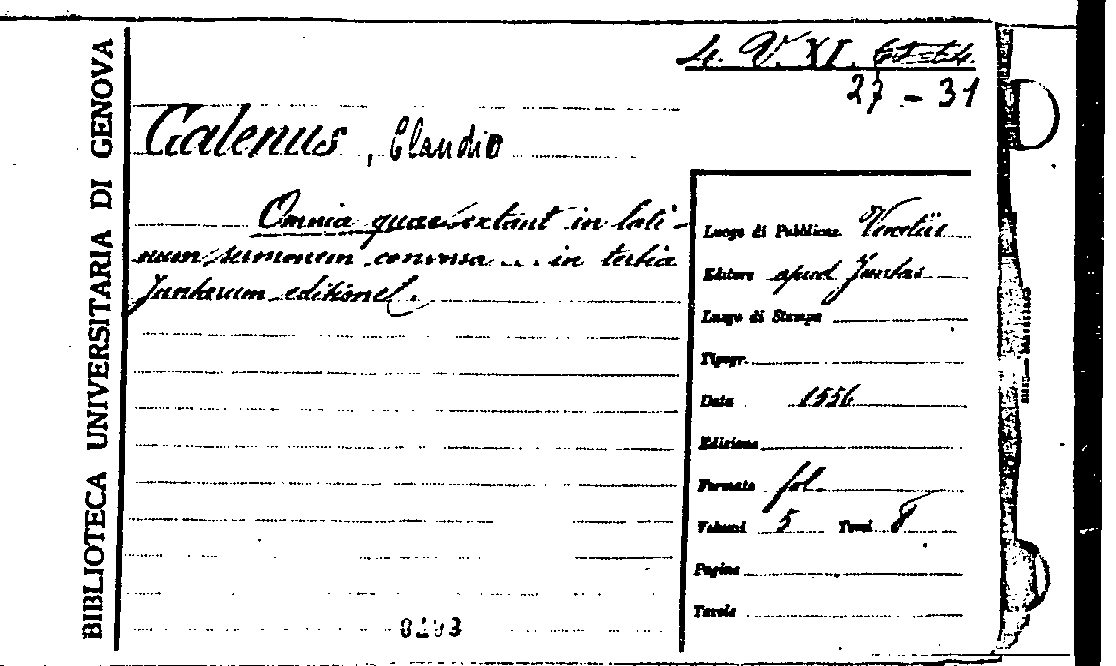 BIBLIOTECA UNIVERSITARIA DI GENOVA
4. V. XI.
27 - 31
Galenus, Claudio
Omnia quae extant in lati-
num sermonem conversa ... in tertia
Juntarum editione.
Luogo di Pubblicaz. Venetiis
Editore apud Juntas
Luogo di Stampa
Tipogr.
Data 1556
Edizione
Formato fol.
Volumi 5 Tomi 8
Pagine
Tavole